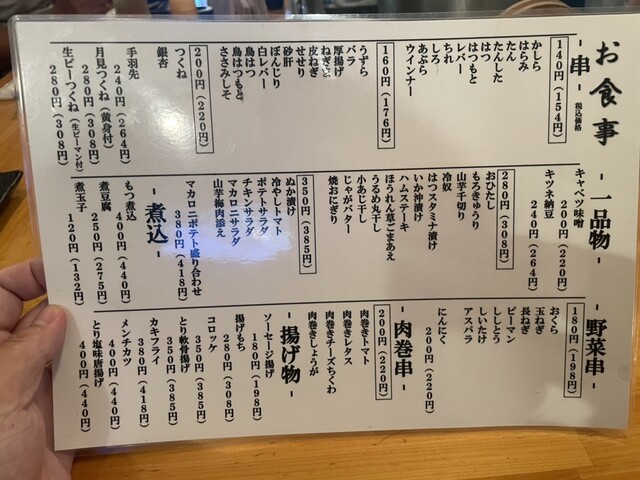 お食事
-串-
税込価格
140円(154円)
かしら
はらみ
たん
たんした
はつ
レバー
はつもと
ちれ
しろ
あぶら
ウインナー
160円(176円)
うずら
バラ
厚揚げ
ねぎま
皮ねぎ
せせり
砂肝
白レバー
ぼんじり
鳥はつ
鳥はつもと
ささみしそ
200円(220円)
つくね
銀杏
手羽先
240円(264円)
月見つくね(黄身付)
280円(308円)
生ピーつくね(生ピーマン付)
280円(308円)
一品物-
キャベツ味噌
200円(220円)
キツネ納豆
240円(264円)
280円(308円)
おひたし
もろきゅうり
山芋千切り
冷奴
はつスタミナ漬け
いか沖漬け
ハムステーキ
ほうれん草ごまあえ
うるめ丸干し
小あじ干し
じゃがバター
焼おにぎり
350円(385円)
ぬか漬け
冷やしトマト
ポテトサラダ
チキンサラダ
マカロニサラダ
山芋梅肉添え
マカロニポテト盛り合わせ
380円(418円)
-煮込-
もつ煮込
400円(440円)
煮豆腐
250円(275円)
煮玉子
120円(132円)
-野菜串-
180円(198円)
おくら
玉ねぎ
長ねぎ
ピーマン
ししとう
しいたけ
アスパラ
にんにく
200円(220円)
-肉巻串-
200円(220円)
肉巻トマト
肉巻きレタス
肉巻きチーズちくわ
肉巻きしょうが
-揚げ物-
ソーセージ揚げ
180円(198円)
揚げもち
280円(308円)
コロッケ
350円(385円)
とり軟骨揚げ
350円(385円)
カキフライ
380円(418円)
メンチカツ
400円(440円)
とり塩味唐揚げ
400円(440円)